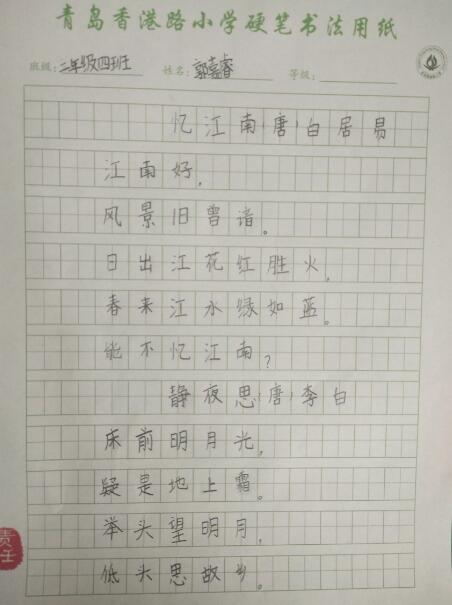 青岛香港路小学硬笔书法用纸
班级：二年级四班 姓名：郭嘉睿 等级：
忆江南（唐）白居易
江南好，
风景旧曾谙。
日出江花红胜火，
春来江水缘如蓝。
能不忆江南？
静夜思（唐）李白
床前明月光，
疑是地上霜。
举头望明月，
低头思故乡。
责任